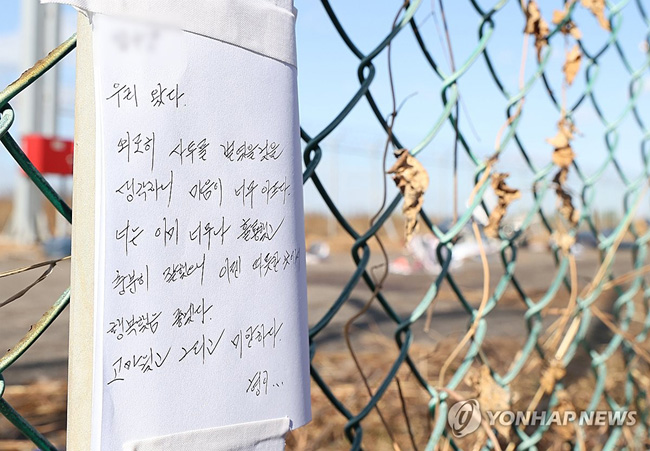 우리 왔다.
외로이 사투를 벌였을것을
생각하니 마음이 너무 아프다.
너는 이미 너무나 훌륭했고
충분히 잘했으니 이젠 따뜻한 곳에서
행복했음 좋겠다.
고마웠고 그리고 미안하다.
형이...
YONHAP NEWS